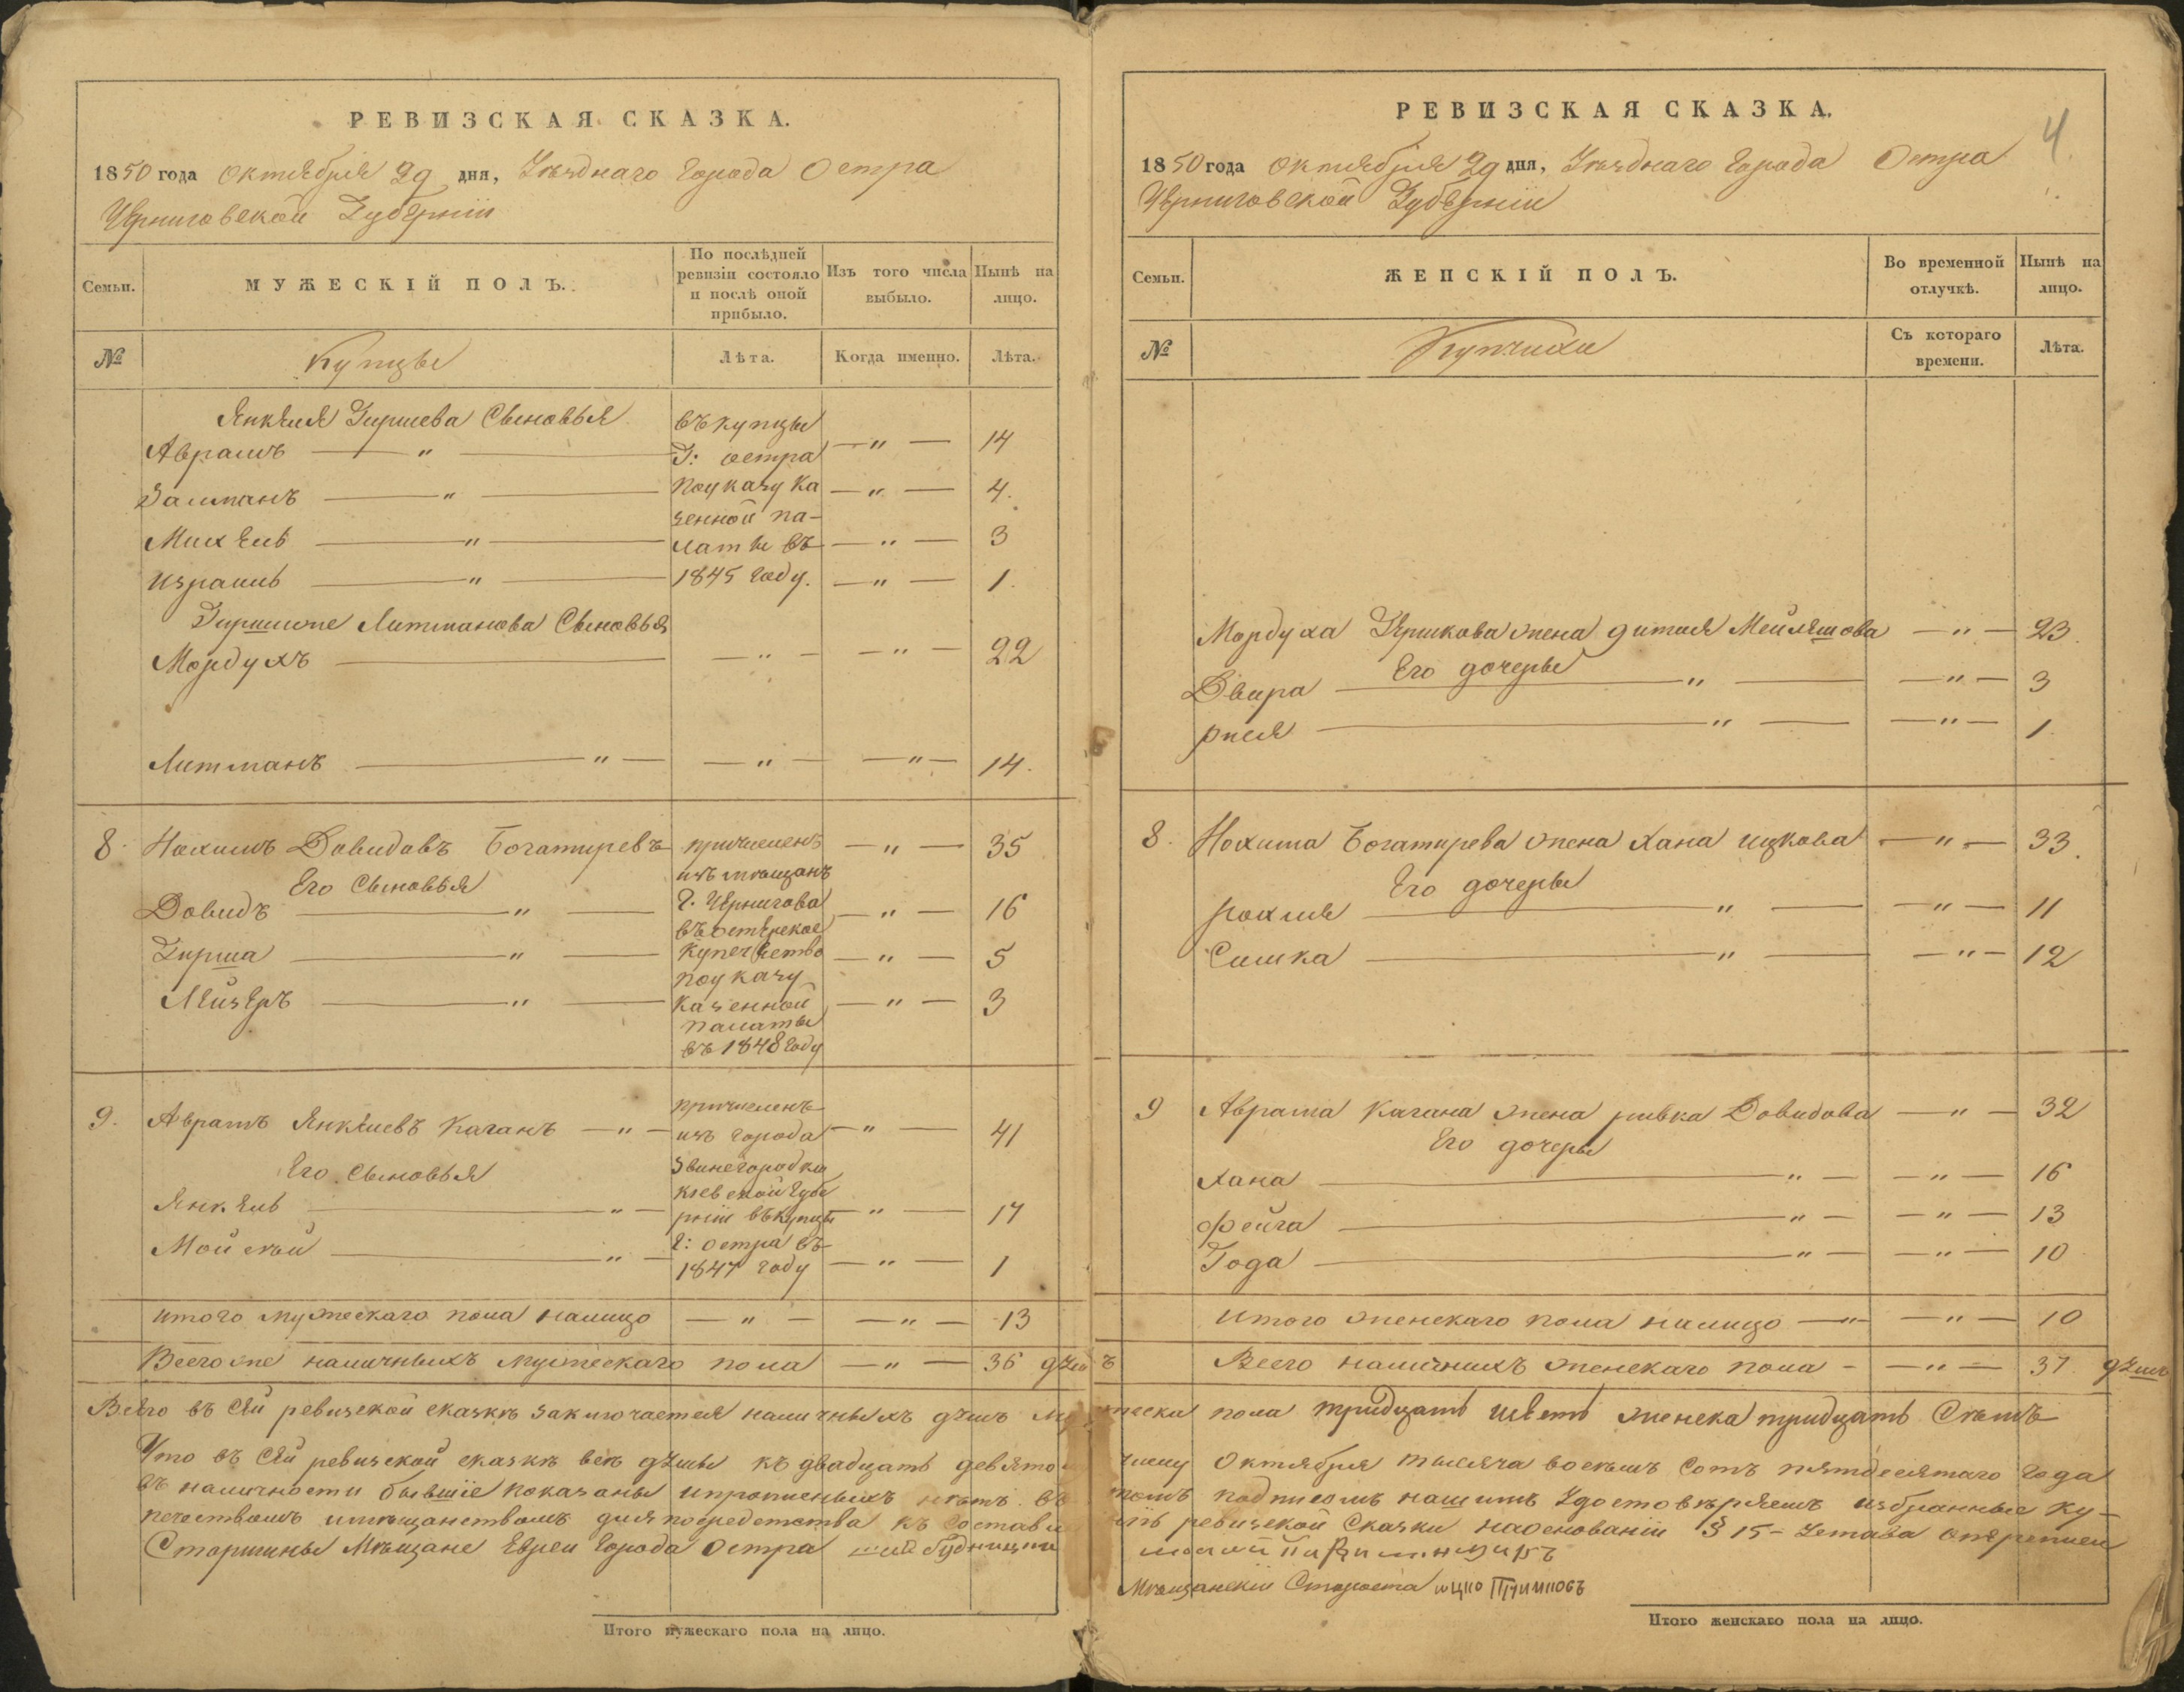 РЕВИЗСКАЯ СКАЗКА.
1850 года Октября 29 дня, Уѣзднаго Города Остра
Черниговской Губерніи
Семьи.
МУЖЕСКІЙ ПОЛЪ.
По послѣдней ревизіи состояло и послѣ оной прибыло.
Изъ того числа выбыло.
Нынѣ на лицо.
№
Купцы
Лѣта.
Когда именно.
Лѣта.
Янкеля Гиршева Сыновья
въ купцы
Аврамъ — " — Г: остра — " — 14
Залманъ — " — По указу Ка — " — 4.
зенной па-
Михель — " — латы въ — " — 3
Израиль — " — 1845 году. — " — 1.
Гиршиже Литманова Сыновья
Мордухъ — — " — — " — 22
Литманъ — " — — " — — " — 14.
8. Нохимъ Довидовъ Богатиревъ причисленъ — " — 35
изъ мѣщанъ
Его Сыновья
Довидъ — " — Г. Чернигова — " — 16
въ остерское
Гирша — " — Купечество — " — 5
по указу
Лейзеръ — " — Казенной — " — 3
палаты
въ 1848 году
9. Аврамъ Янкелевъ Каганъ — " — причисленъ изъ города — " — 41
Его Сыновья
Звенегородки
Кіевской Губе
Янкель — " — рніи въ купцы — " — 17
Мойсей — " — Г: остра въ
1847 году — " — 1
итого мужескаго пола налицо — " — — " — 13
Всегоже наличныхъ мужескаго пола — " — 36 душъ
Всего въ сей ревизской сказкѣ заключается наличныхъ душъ
Что въ сей ревизской сказкѣ всѣ душы къ двадцать девято
въ наличности бывшіе показаны и прописныхъ нѣтъ. въ
печествомъ и мѣщанствомъ для посредства къ Состав
Старшины Мѣщане Евреи Города Остра
Итого мужескаго пола на лицо.
РЕВИЗСКАЯ СКАЗКА.
4
1850 года Октября 29 дня, Уѣзднаго Города Остра
Черниговской Губерніи
Семьи.
ЖЕНСКІЙ ПОЛЪ.
Во временной отлучкѣ.
Нынѣ на лицо.
№
Купчихи
Съ котораго времени.
Лѣта.
Мордуха Гершкова жена Мейлешова — " — 23.
Его дочеры
Двира — " — — " — 3
— " — — " — 1.
8. Нохима Богатирева жена Хана ицкова — " — 33.
Его дочеры
рохля — " — — " — 11
Симка — " — — " — 12
9 Аврама Кагана жена ривка Довидова — " — 32
Его дочеры
Хана — " — — " — 16
фейга — " — — " — 13
Года — " — — " — 10
итого женскаго пола налицо — " — — " — 10
Всего наличныхъ женскаго пола — — " — 37 душъ
пола тридцать шесть женска тридцать Семъ
числу Октября тысяча восемъ сотъ пятдесятаго Года
подписомъ нашимъ Удостовѣряемъ избранные Ку-
ревизской Сказки наоснованіи § 15 - Устава
Мѣщанскій Староста
Итого женскаго пола на лицо.